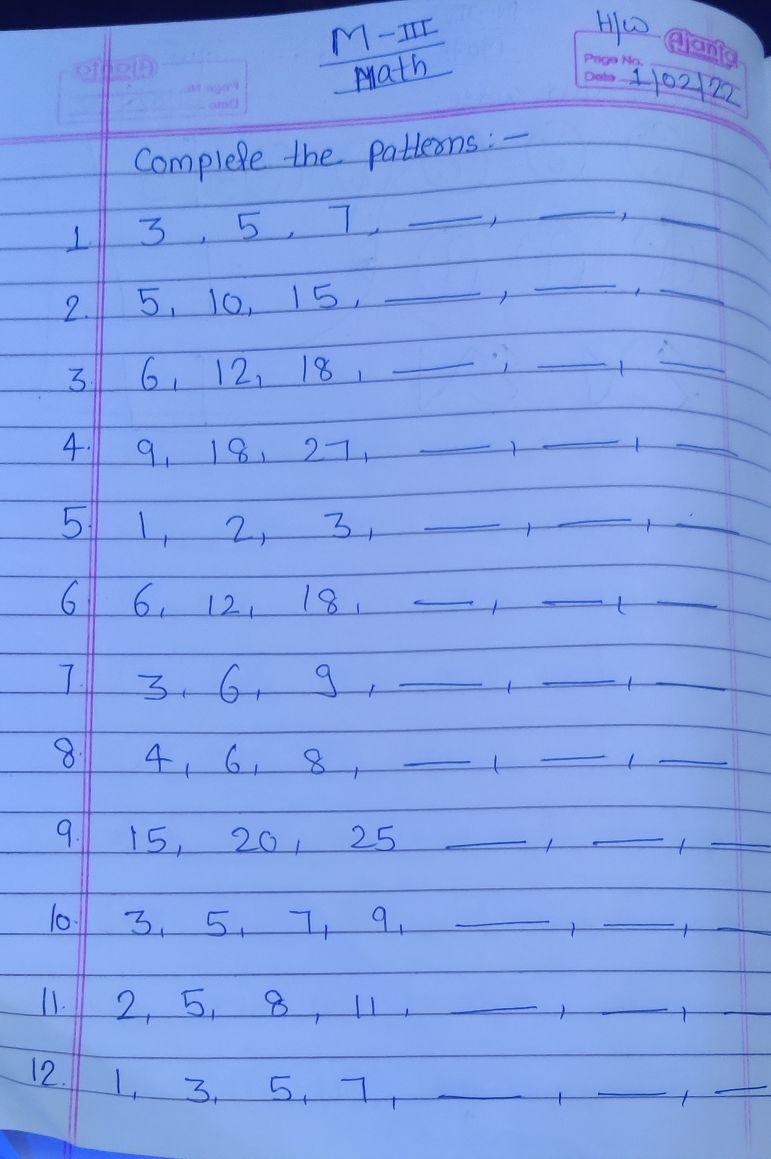 M-III
Math
H/W
Ajanta
Page No.
Date 1/02/22
Complete the patterns:-
1 3, 5, 7, __, __, __
2. 5, 10, 15, __, __, __
3. 6, 12, 18, __, __, __
4. 9, 18, 27, __, __, __
5. 1, 2, 3, __, __, __
6 6, 12, 18, __, __, __
7. 3, 6, 9, __, __, __
8. 4, 6, 8, __, __, __
9. 15, 20, 25 __, __, __
10. 3, 5, 7, 9, __, __, __
11. 2, 5, 8, 11, __, __, __
12. 1, 3, 5, 7, __, __, __